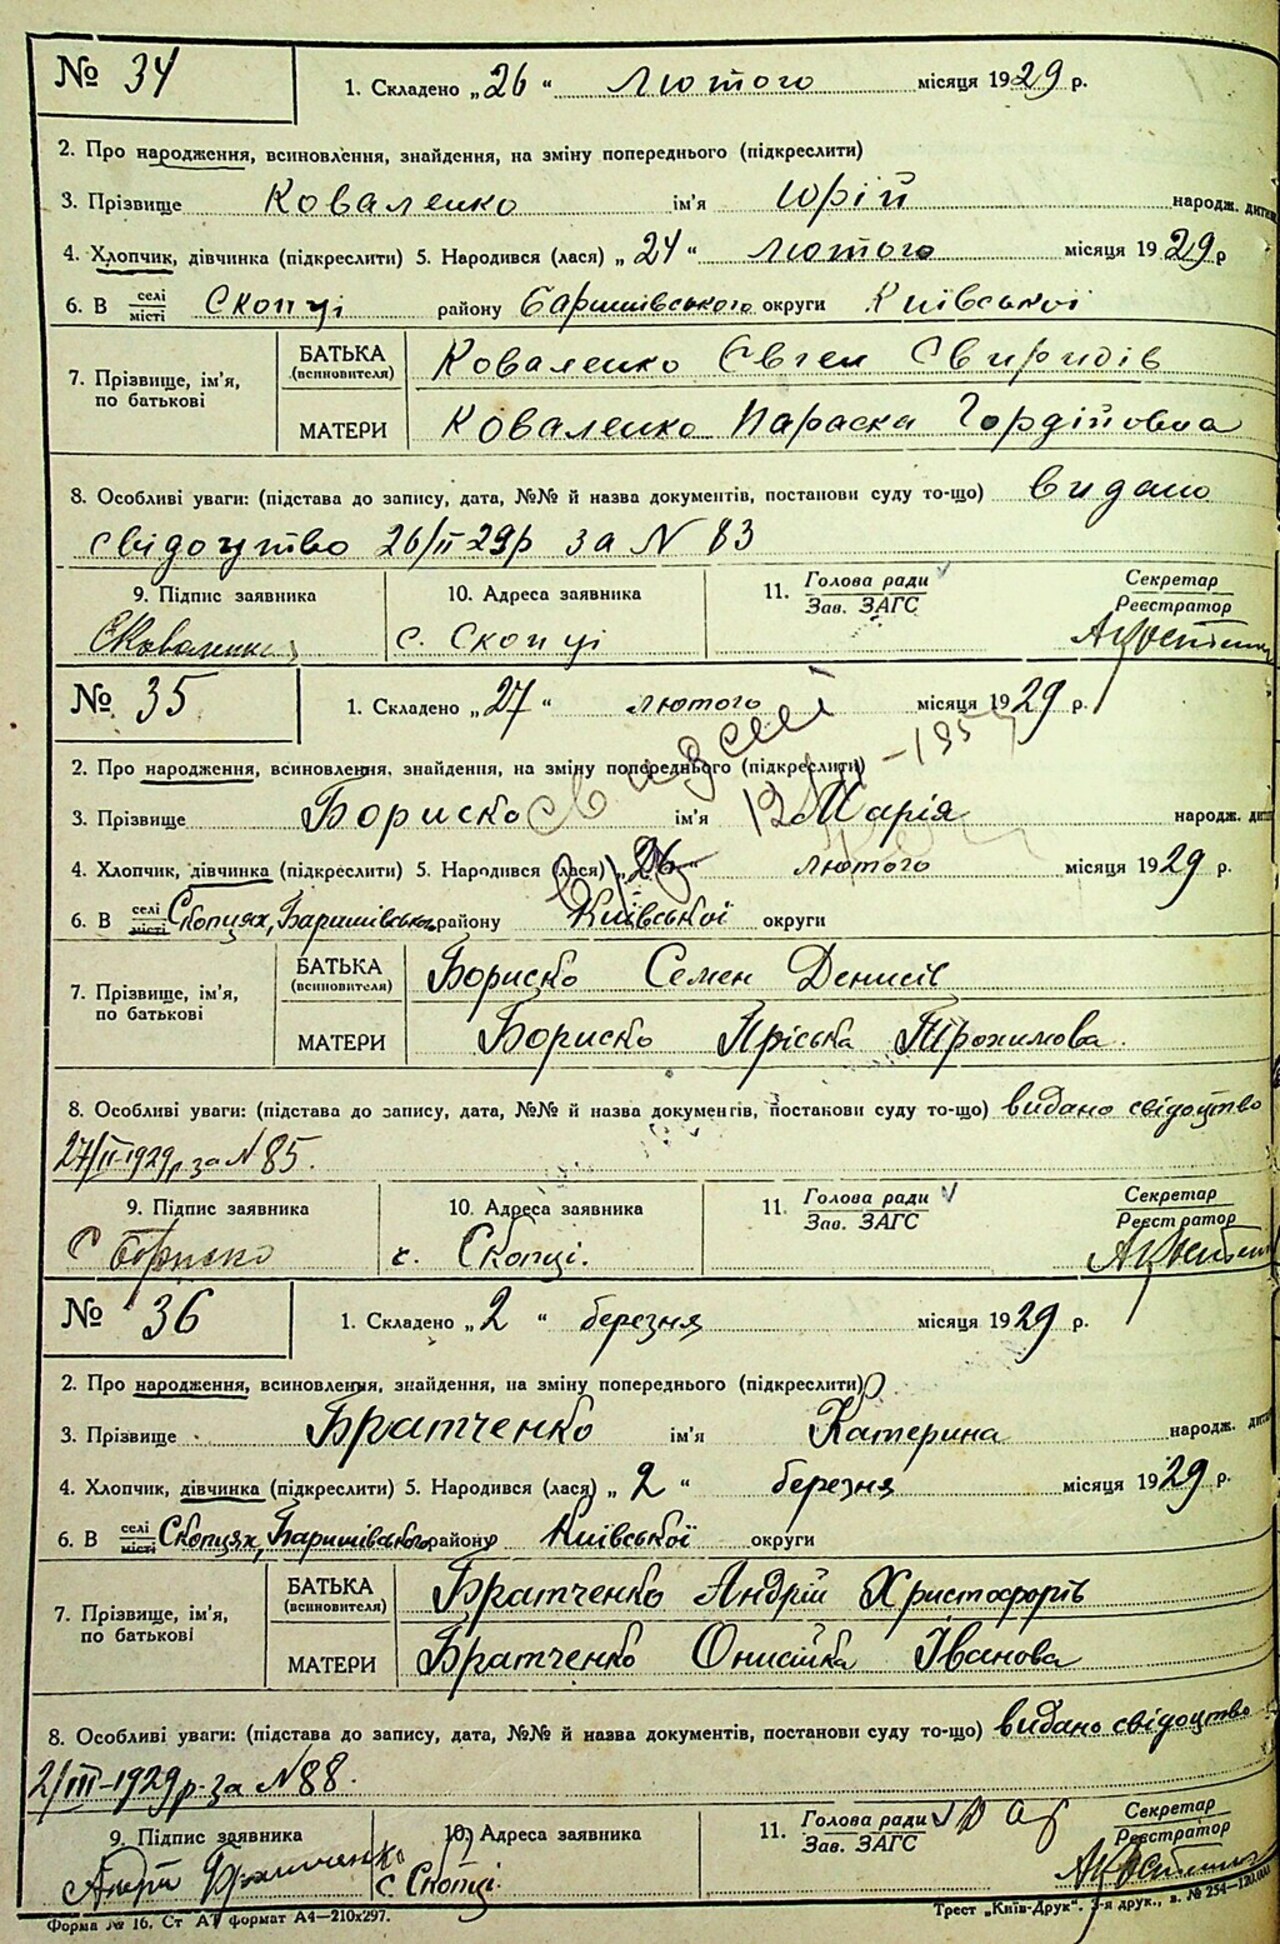 № 34
1. Складено „26“ лютого місяця 1929 р.
2. Про народження, всиновлення, знайдення, на зміну попереднього (підкреслити)
3. Прізвище Коваленко ім'я Юрій народж. дитини
4. Хлопчик, дівчинка (підкреслити) 5. Народився (лася) „24“ лютого місяця 1929 р
6. В селі місті Скопці району Баришівського округи Київської
7. Прізвище, ім'я, по батькові
БАТЬКА (всиновителя) Коваленко Євген Свиридів
МАТЕРИ Коваленко Параска Гордійовна
8. Особливі уваги: (підстава до запису, дата, №№ й назва документів, постанови суду то-що) видано
свідоцтво 26/II 29р за N 83
9. Підпис заявника 10. Адреса заявника 11. Голова ради Зав. ЗАГС Секретар Реєстратор
ЄКоваленко с. Скопці
№ 35
1. Складено „27“ лютого місяця 1929 р.
2. Про народження, всиновлення, знайдення, на зміну попереднього (підкреслити)
3. Прізвище Бориско ім'я Марія народж. дит
4. Хлопчик, дівчинка (підкреслити) 5. Народився (лася) „26“ лютого місяця 1929 р.
6. В селі місті Скопцях, Баришівського району Київської округи
7. Прізвище, ім'я, по батькові
БАТЬКА (всиновителя) Бориско Семен Денисів
МАТЕРИ Бориско Пріська Трохимова.
8. Особливі уваги: (підстава до запису, дата, №№ й назва документів, постанови суду то-що) видано свідоцтво
27/II-1929р за N 85.
9. Підпис заявника 10. Адреса заявника 11. Голова ради Зав. ЗАГС Секретар Реєстратор
С Бориско с. Скопці.
№ 36
1. Складено „2“ березня місяця 1929 р.
2. Про народження, всиновлення, знайдення, на зміну попереднього (підкреслити)
3. Прізвище Братченко ім'я Катерина народж. дит
4. Хлопчик, дівчинка (підкреслити) 5. Народився (лася) „2“ березня місяця 1929 р.
6. В селі місті Скопцях, Баришівського району Київської округи
7. Прізвище, ім'я, по батькові
БАТЬКА (всиновителя) Братченко Андрій Христофорів
МАТЕРИ Братченко Онисійка Іванова
8. Особливі уваги: (підстава до запису, дата, №№ й назва документів, постанови суду то-що) видано свідоцтво
2/III-1929р. за N 88.
9. Підпис заявника 10. Адреса заявника 11. Голова ради Зав. ЗАГС Секретар Реєстратор
Андрій Братченко с Скопці.
Форма № 16. Ст А4 формат А4—210х297. Трест „Київ-Друк“. 3-я друк., з. № 254—120.000